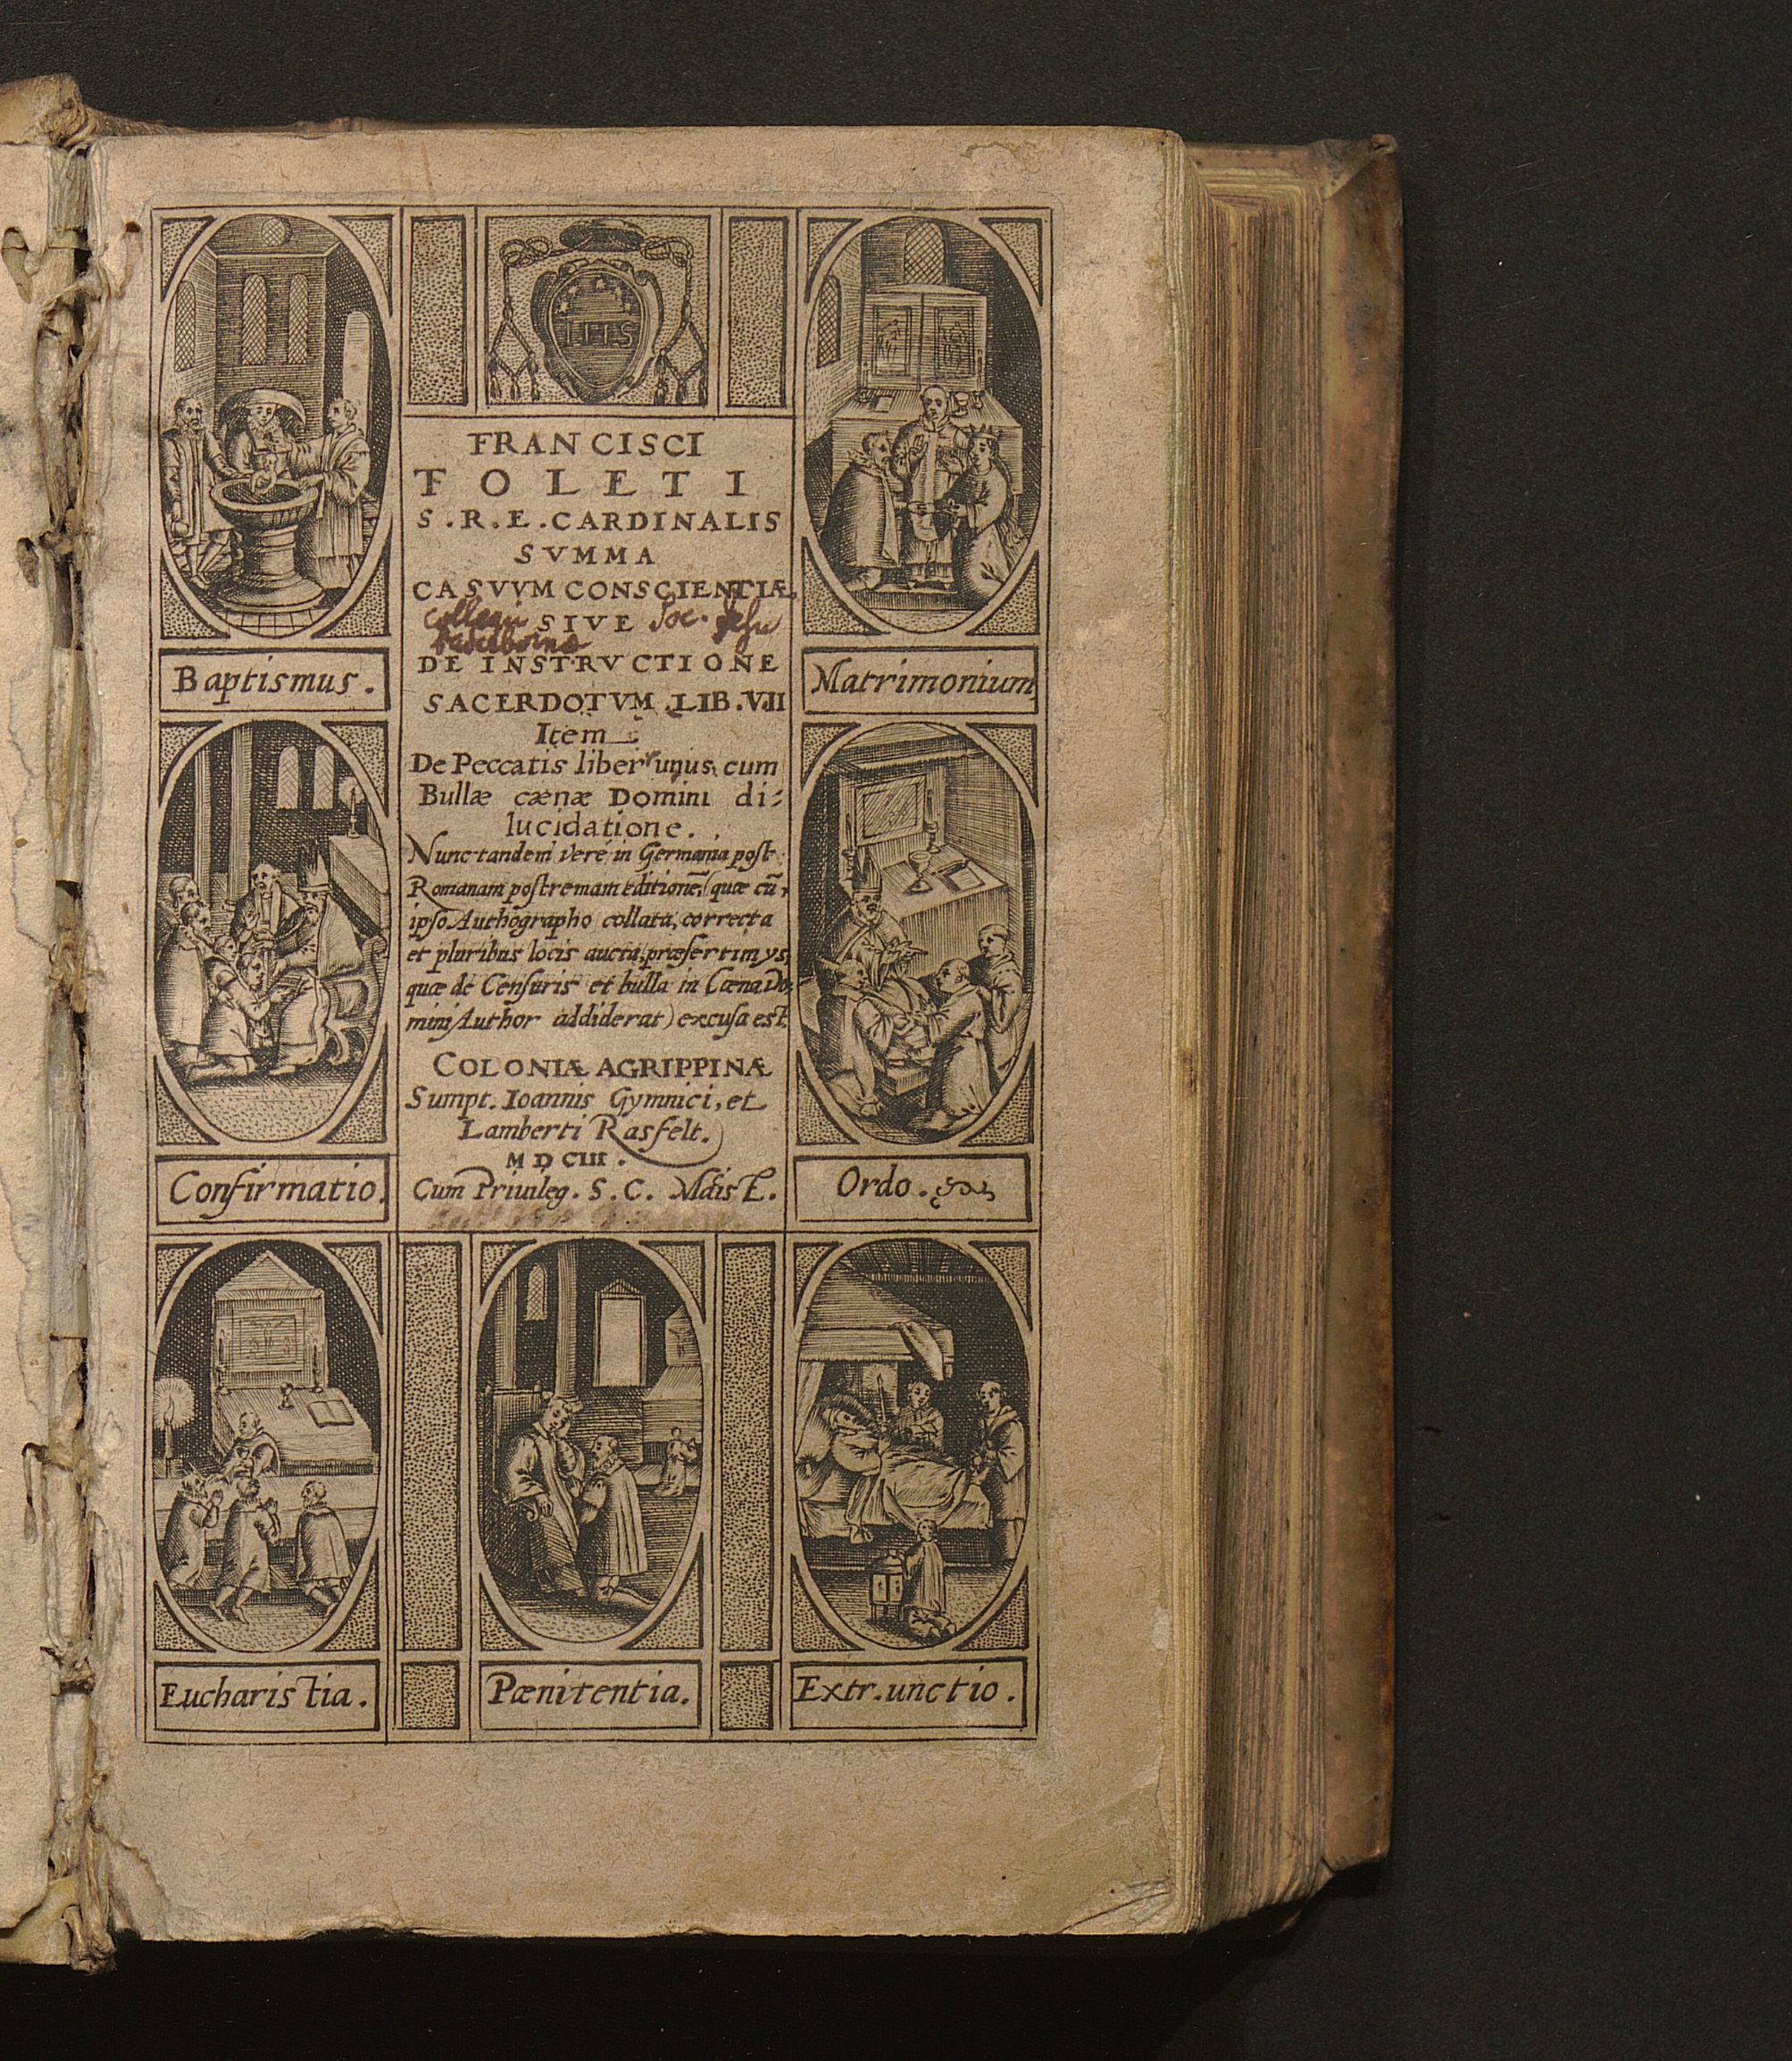 FRANCISCI
TOLETI
S.R.E.CARDINALIS
SVMMA
CASVVM CONSCIENTIÆ,
Collegii SIVE Soc. Jesu
Paderbornæ
DE INSTRVCTIONE
SACERDOTVM.LIB.VII
Item
De Peccatis liber unus, cum
Bullæ cænæ Domini di:
lucidatione.
Nunc tandem vere in Germania post
Romanam postremam editionē, (quæ cū
ipso Authographo collata, correcta
et pluribus locis aucta, præsertim ys,
quæ de Censuris et bulla in Cœna Do:
mini Author addiderat) excusa est.
COLONIÆ AGRIPPINÆ
Sumpt. Ioannis Gymnici, et
Lamberti Rasfelt.
MDCIII.
Cum Priuileg. S. C. Mdis.
IHS
Baptismus.
Matrimonium
Confirmatio.
Ordo.
Eucharistia.
Pænitentia.
Extr.unctio.